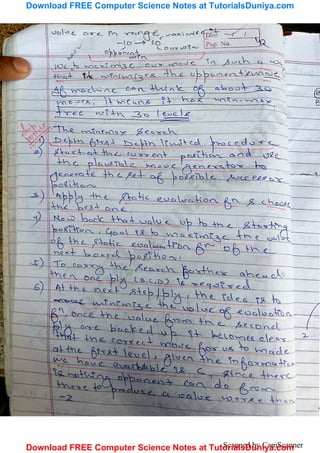 Download FREE Computer Science Notes at TutorialsDuniya.com
value are in range maximizer
-10 → 10
Date
Page No.
42
opponent our win
win
We to maximise our move in such a way
that it minimizes the opponent's move
If machine can think of about 30
moves, it means it has min-max
tree with 30 levels
The minimax Search
1) Depth first Depth limited procedure
2) Start at the current position and use
the plausible move generator to
generate the set of possible successor
position
3) Apply the static evaluation fn & choose
the best one
4) Now back that value up to the starting
position, Goal is to maximize the value
of the static evaluation fn of the
next board position.
5) To carry the search further ahead
then one ply (B,C,D) is required
6) At the next step/ply, the idea is to
minimize the value of evaluation
fn, once the value from the second
ply are backed up it becomes clear
that the correct move for us to made
at the first level, given the information
we have available is C, since there
is nothing opponent can do from
there to produce a value worse than
-2
Scanned by CamScanner
Download FREE Computer Science Notes at TutorialsDuniya.com